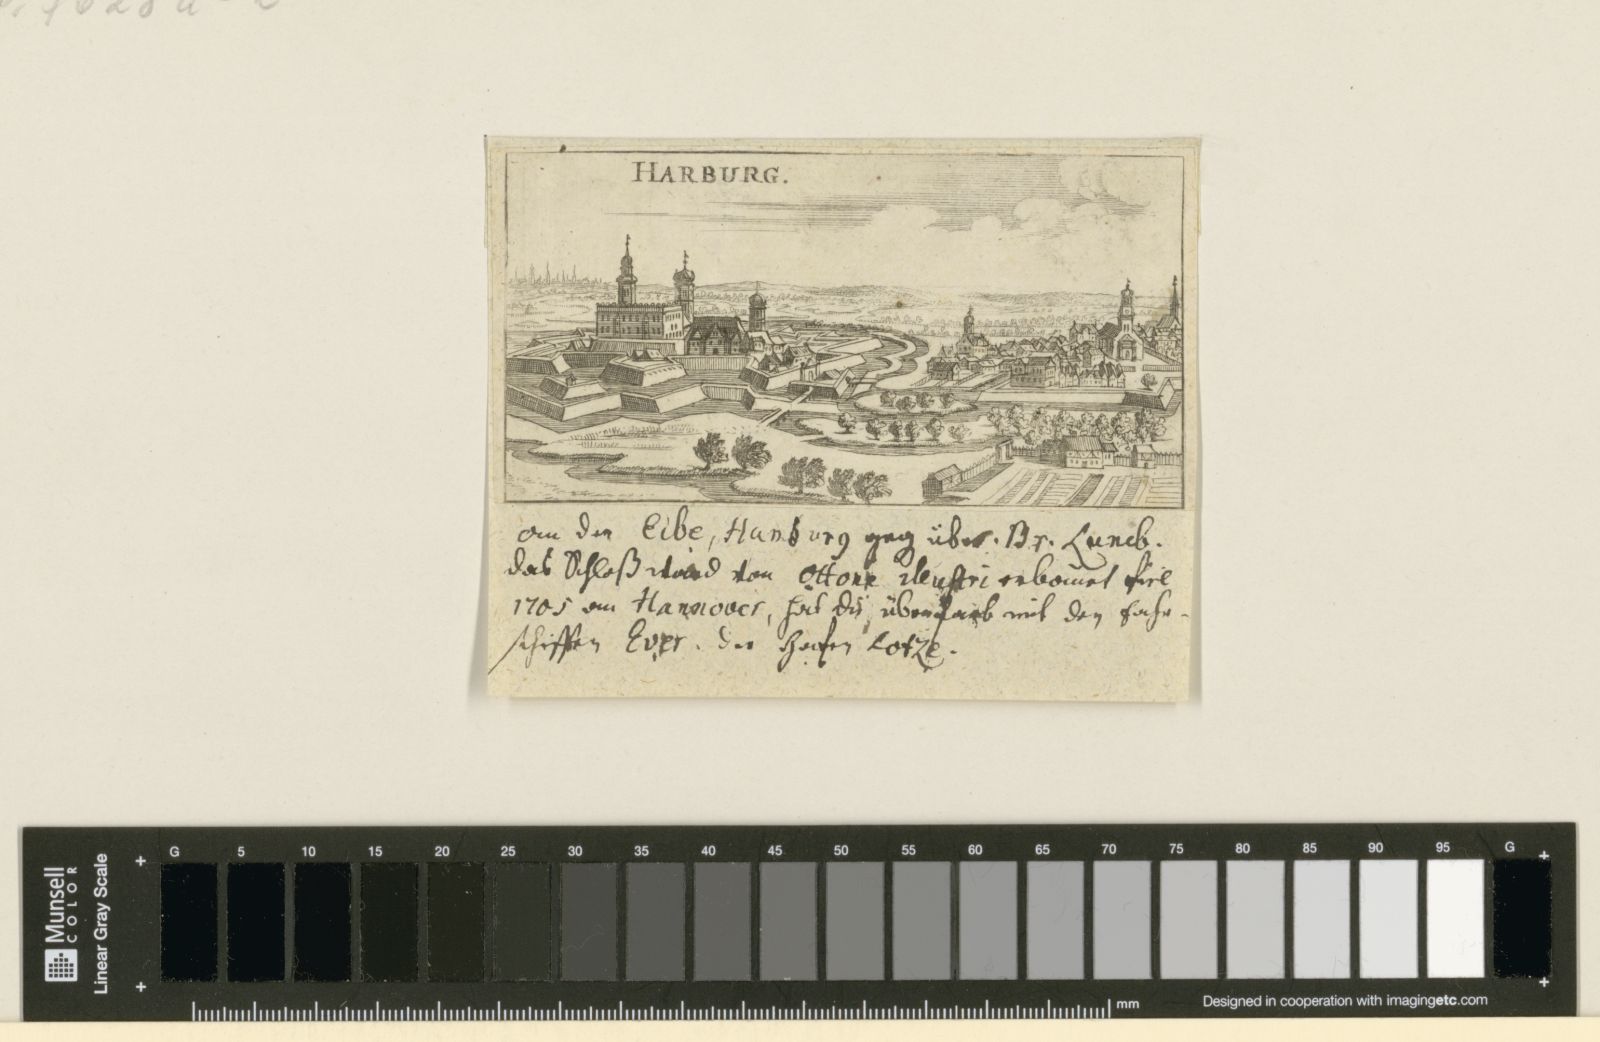 HARBURG.
an der Elbe, Hamburg geg über. Br. Luneb.
das Schloß ward von Ottone illustri erbauet fiel
1705 an Hannover, hat die überfarb mit den Fahr-
schiffen Ever. der Hafen Lotze.
Munsell
COLOR
Linear Gray Scale
G 5 10 15 20 25 30 35 40 45 50 55 60 65 70 75 80 85 90 95 G
mm
Designed in cooperation with imagingetc.com